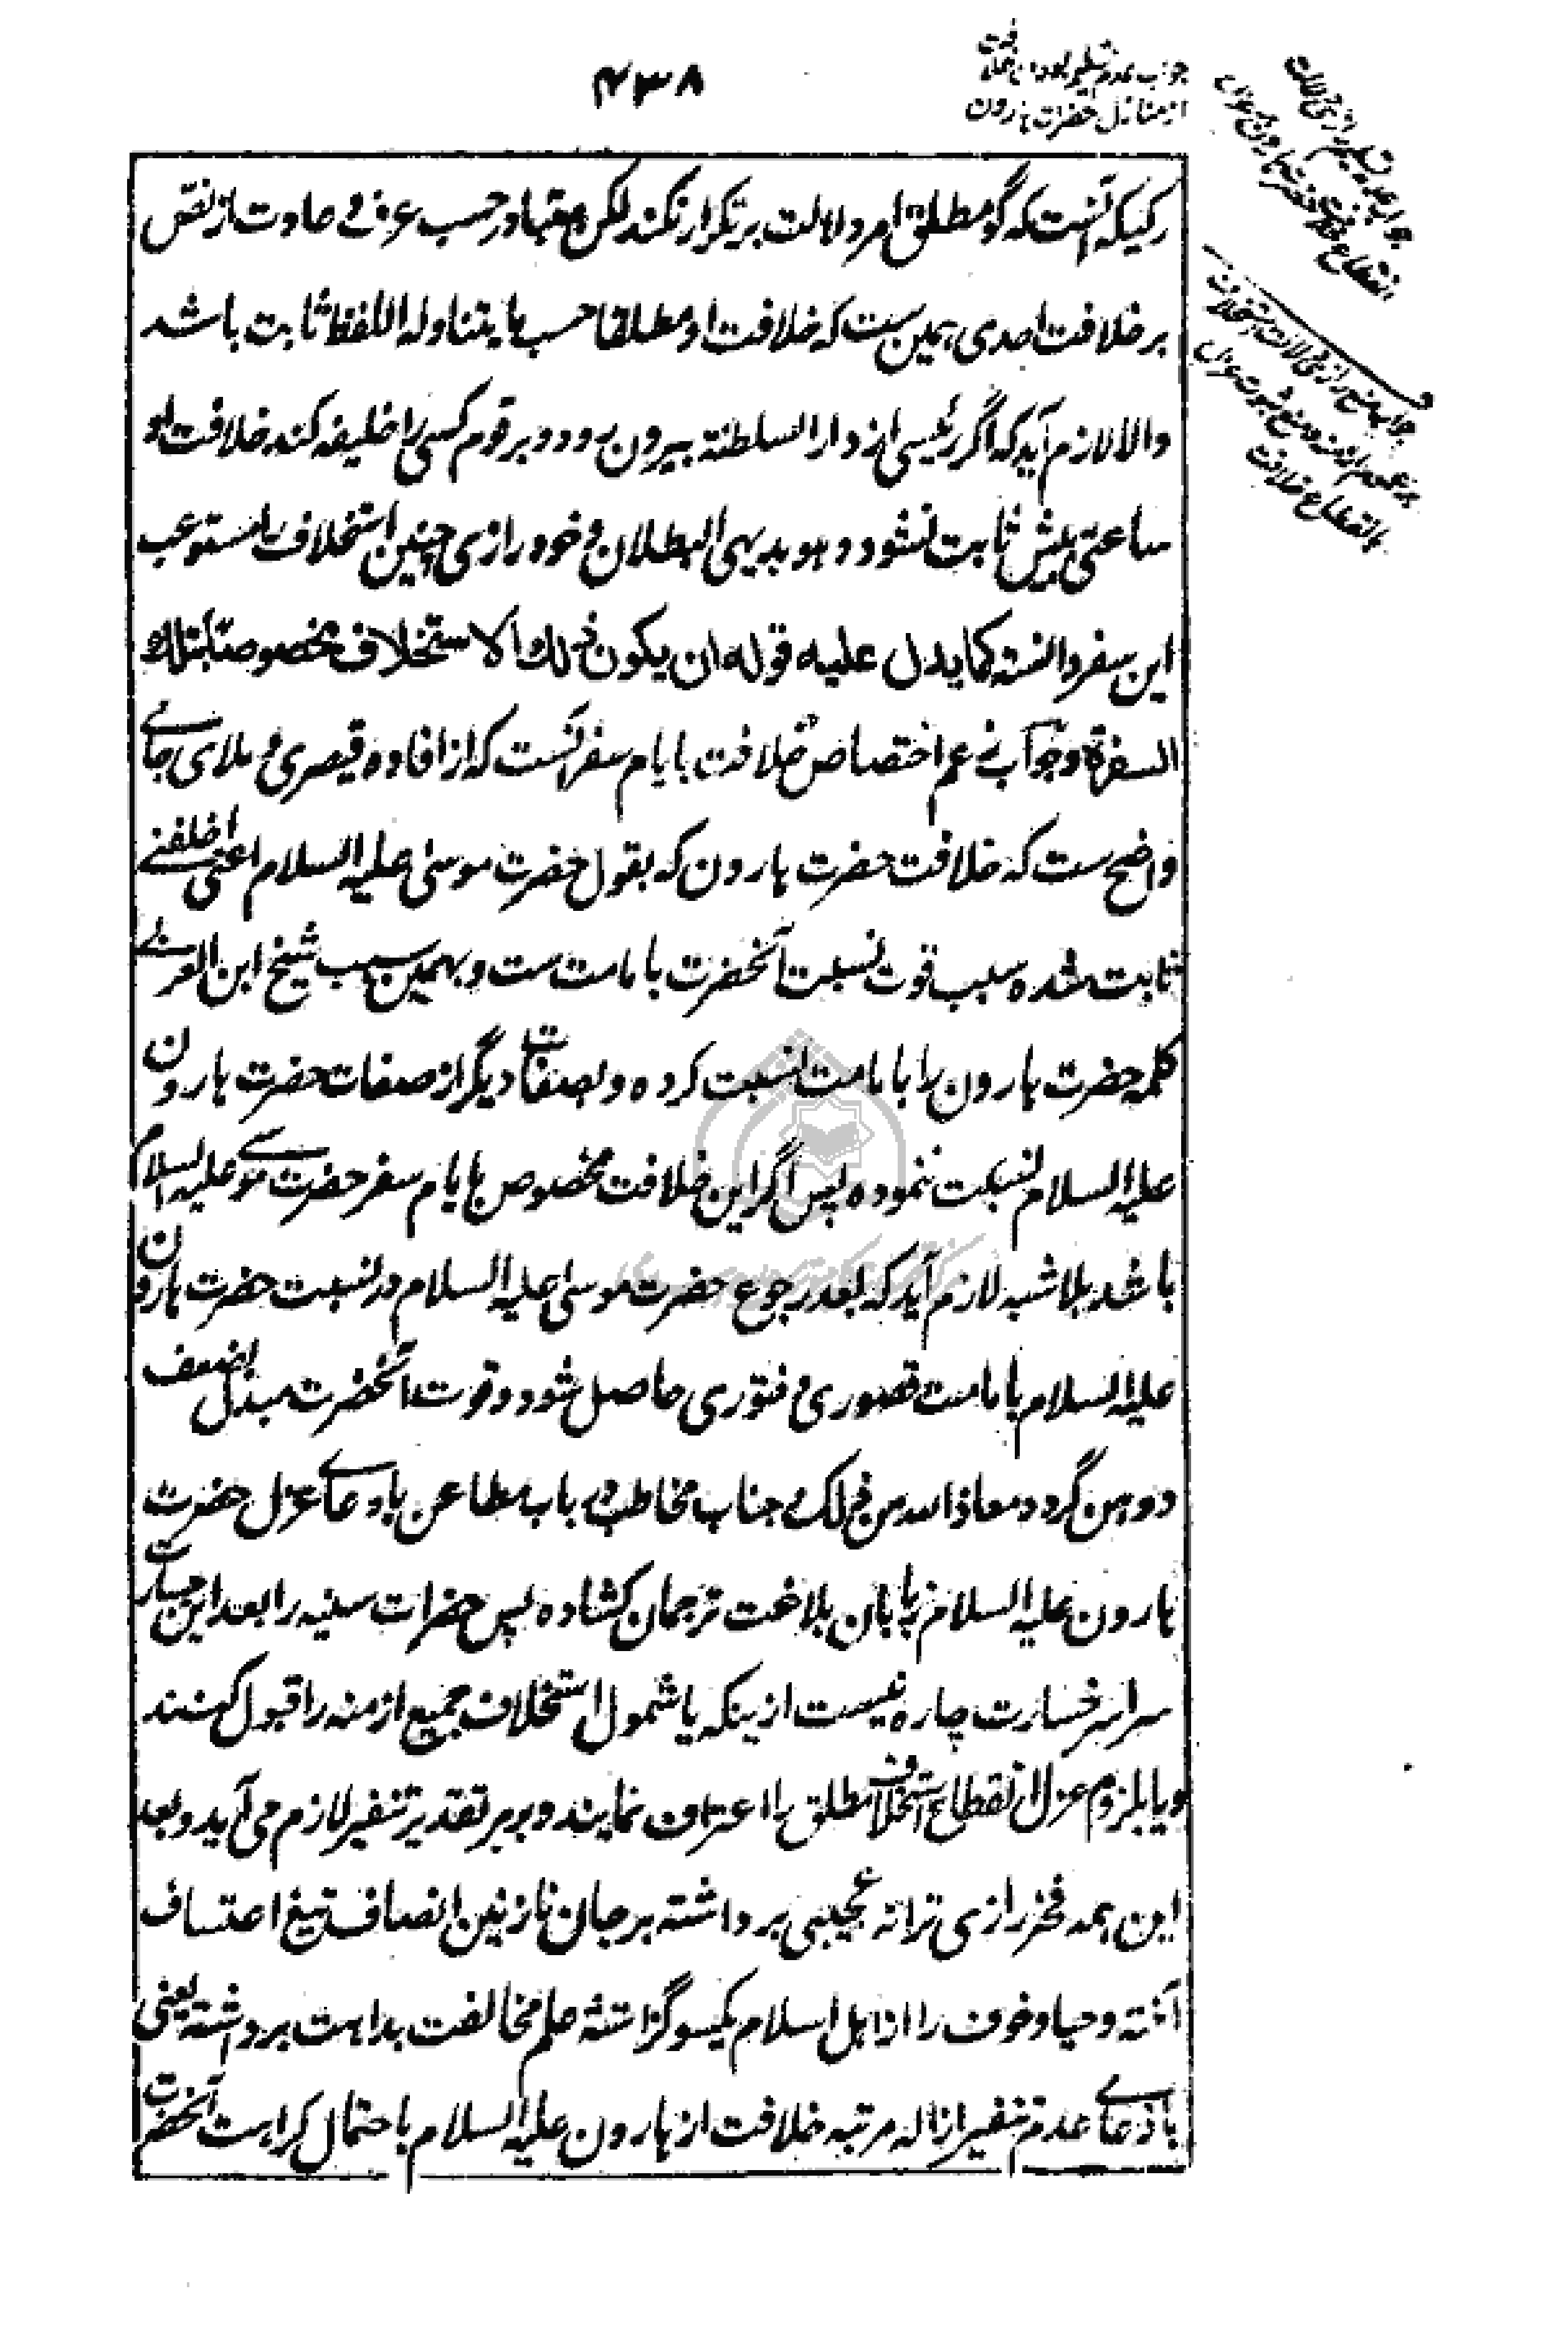 ۴۳۸
جواب عدم تسلیم بودن خلافت
از منازل حضرت هارون
رکیکه آنست که گو مطلق امر دلالت بر تکرار نکند لکن متبادر حسب عرف و عادت از نص
بر خلافت احدی همین ست که خلافت او مطلقا حسب ما یتناوله اللفظ ثابت باشد
والا لازم آید که اگر رئیسی از دار السلطنة بیرون رود و بر قوم کسی را خلیفه کند خلافت او
ساعتی بیش ثابت نشود و هو بدیهی البطلان و خود رازی چنین استخلاف را مستوعب
این سفر دانسته کما یدل علیه قوله ان یکون ذلک الاستخلاف مخصوصا بتلک
السفرة و جواب زعم اختصاص خلافت بایام سفر آنست که از افاده قیصری و ملای جامی
واضح ست که خلافت حضرت هارون که بقول حضرت موسی علیه السلام اعنی اخلفنی
ثابت شده سبب قوت نسبت آنحضرت بامامت ست و بهمین سبب شیخ ابن العربی
کلمه حضرت هارون را بامامت نسبت کرده و بصفات دیگر از صفات حضرت هارون
علیه السلام نسبت ننموده پس اگر این خلافت مخصوص بایام سفر حضرت موسی علیه السلام
باشد بلا شبه لازم آید که بعد رجوع حضرت موسی علیه السلام در نسبت حضرت هارون
علیه السلام بامامت قصوری و فتوری حاصل شود و قوت آنحضرت مبدل بضعف
و وهن گردد معاذ الله من ذلک و جناب مخاطب در باب مطاعن بادعای عزل حضرت
هارون علیه السلام زبان بلاغت ترجمان گشاده پس حضرات سنیه را بعد این جسارت
سراسر خسارت چاره نیست ازینکه یا شمول استخلاف جمیع ازمنه را قبول کنند
و یا بلزوم عزل انقطاع استخلاف مطلق را اعتراف نمایند و بهر تقدیر تنفیر لازم می آید و بعد
این همه فخر رازی ترانه عجیبی برداشته بر جان نازنین انصاف تیغ اعتساف
آخته و حیا و خوف را از اهل اسلام یکسو گزاشته علم مخالفت بداهت برداشته یعنی
بادعای عدم تنفیر ازاله مرتبه خلافت از هارون علیه السلام باحتمال کراهت آنحضرت